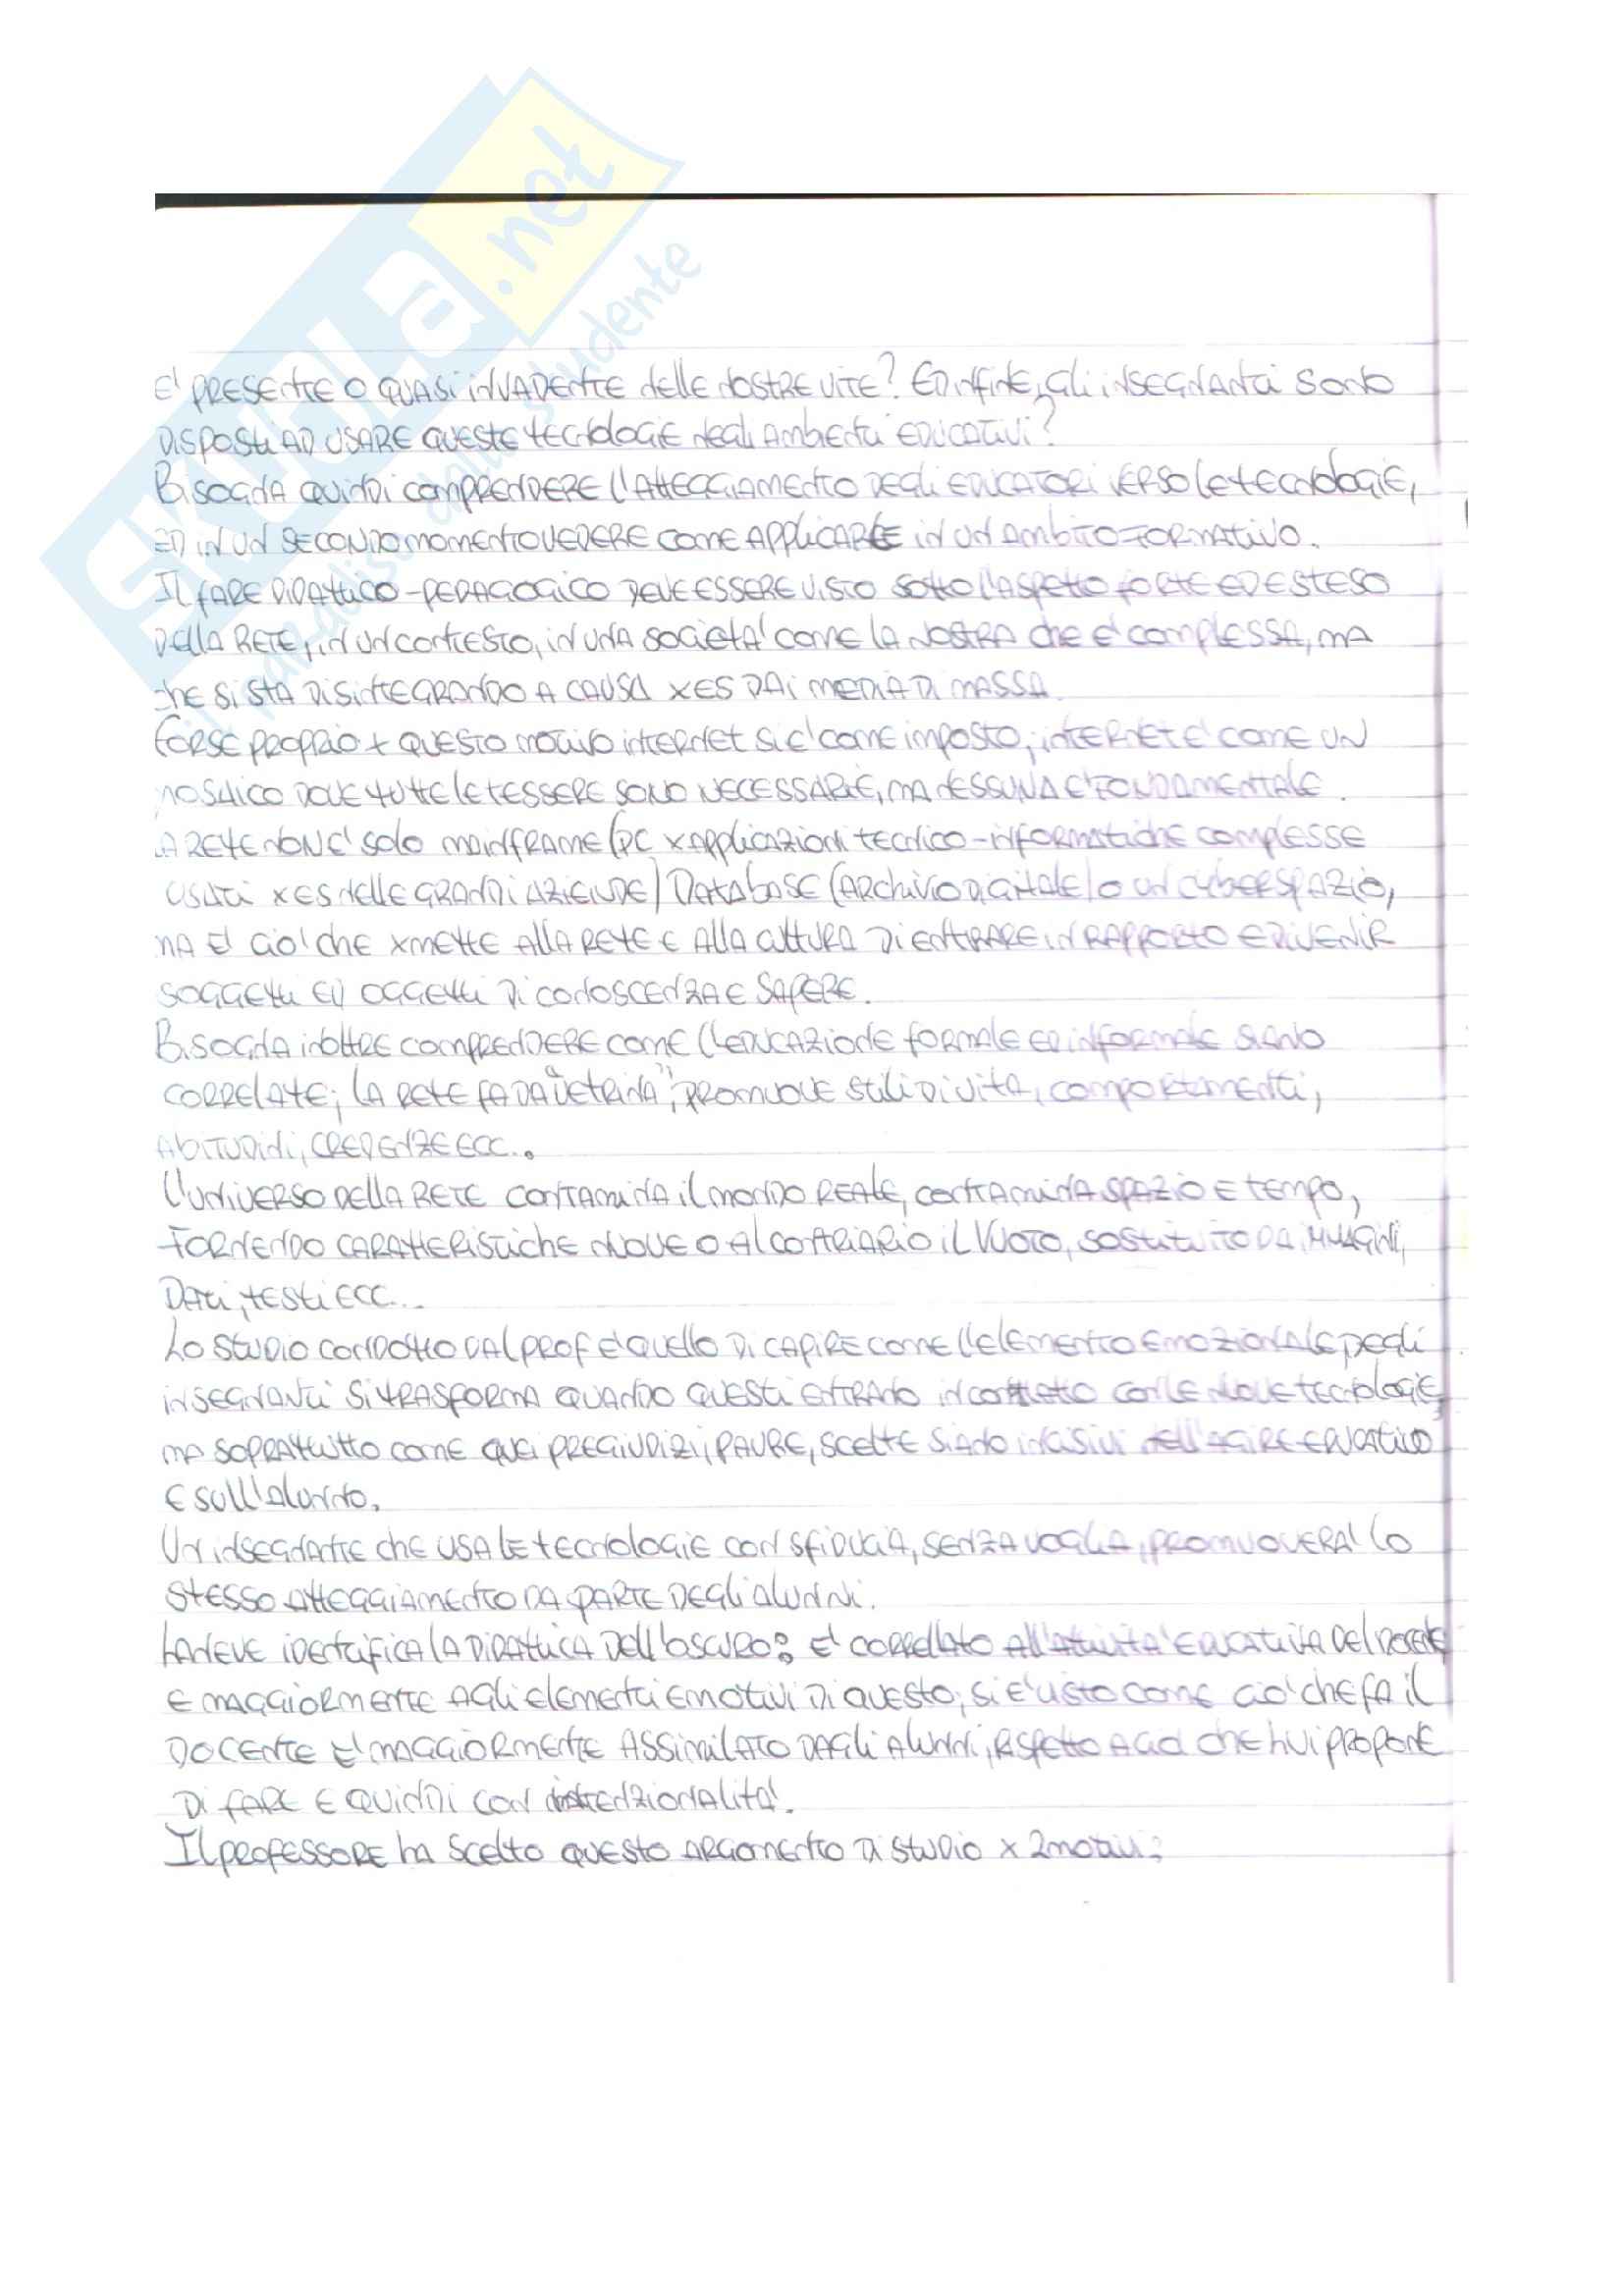 SKUOLA.net
il paradiso dello studente
E' PRESENTE O QUASI INVADENTE NELLE NOSTRE VITE? ED INFINE, GLI INSEGNANTI SONO
DISPOSTI AD USARE QUESTE TECNOLOGIE NEGLI AMBIENTI EDUCATIVI?
BISOGNA QUINDI COMPRENDERE L'ATTEGGIAMENTO DEGLI EDUCATORI VERSO LE TECNOLOGIE,
ED IN UN SECONDO MOMENTO VEDERE COME APPLICARLE IN UN AMBITO FORMATIVO.
IL FARE DIDATTICO-PEDAGOGICO DEVE ESSERE VISTO SOTTO L'ASPETTO FORTE ED ESTESO
DELLA RETE, IN UN CONTESTO, IN UNA SOCIETA' COME LA NOSTRA CHE E' COMPLESSA, MA
CHE SI STA DISINTEGRANDO A CAUSA X ES DAI MEDIA DI MASSA.
FORSE PROPRIO X QUESTO MOTIVO INTERNET SI E' COME IMPOSTO, INTERNET E' COME UN
MOSAICO DOVE TUTTE LE TESSERE SONO NECESSARIE, MA NESSUNA E' FONDAMENTALE.
LA RETE NON E' SOLO MAINFRAME (PC X APPLICAZIONI TECNICO-INFORMATICHE COMPLESSE
USATI X ES NELLE GRANDI AZIENDE) DATABASE (ARCHIVIO DIGITALE) O UN CYBERSPAZIO,
MA E' CIO' CHE XMETTE ALLA RETE E ALLA CULTURA DI ENTRARE IN RAPPORTO E DIVENIR
SOGGETTI ED OGGETTI DI CONOSCENZA E SAPERE.
BISOGNA INOLTRE COMPRENDERE COME L'EDUCAZIONE FORMALE ED INFORMALE SIANO
CORRELATE; LA RETE FA DA "VETRINA", PROMUOVE STILI DI VITA, COMPORTAMENTI,
ABITUDINI, CREDENZE ECC..
L'UNIVERSO DELLA RETE CONTAMINA IL MONDO REALE, CONTAMINA SPAZIO E TEMPO,
FORNENDO CARATTERISTICHE NUOVE O AL CONTRARIO IL VUOTO, SOSTITUITO DA IMMAGINI,
DATI, TESTI ECC...
LO STUDIO CONDOTTO DAL PROF E' QUELLO DI CAPIRE COME L'ELEMENTO EMOZIONALE, DEGLI
INSEGNANTI SI TRASFORMA QUANDO QUESTI ENTRANO IN CONTATTO CON LE NUOVE TECNOLOGIE,
MA SOPRATTUTTO COME QUEI PREGIUDIZI, PAURE, SCELTE SIANO INCISIVI NELL'AGIRE EDUCATIVO
E SULL'ALUNNO.
UN INSEGNANTE CHE USA LE TECNOLOGIE CON SFIDUCIA, SENZA VOGLIA, PROMUOVERA' LO
STESSO ATTEGGIAMENTO DA PARTE DEGLI ALUNNI.
LANEVE IDENTIFICA LA DIDATTICA DELL'OSCURO: E' CORRELLATO ALL'ATTIVITA' EDUCATIVA DEL DOCENTE
E MAGGIORMENTE AGLI ELEMENTI EMOTIVI DI QUESTO; SI E' VISTO COME CIO' CHE FA IL
DOCENTE E' MAGGIORMENTE ASSIMILATO DAGLI ALUNNI, RISPETTO A CIO' CHE LUI PROPONE
DI FARE E QUINDI CON INTENZIONALITA'.
IL PROFESSORE HA SCELTO QUESTO ARGOMENTO DI STUDIO X 2 MOTIVI: